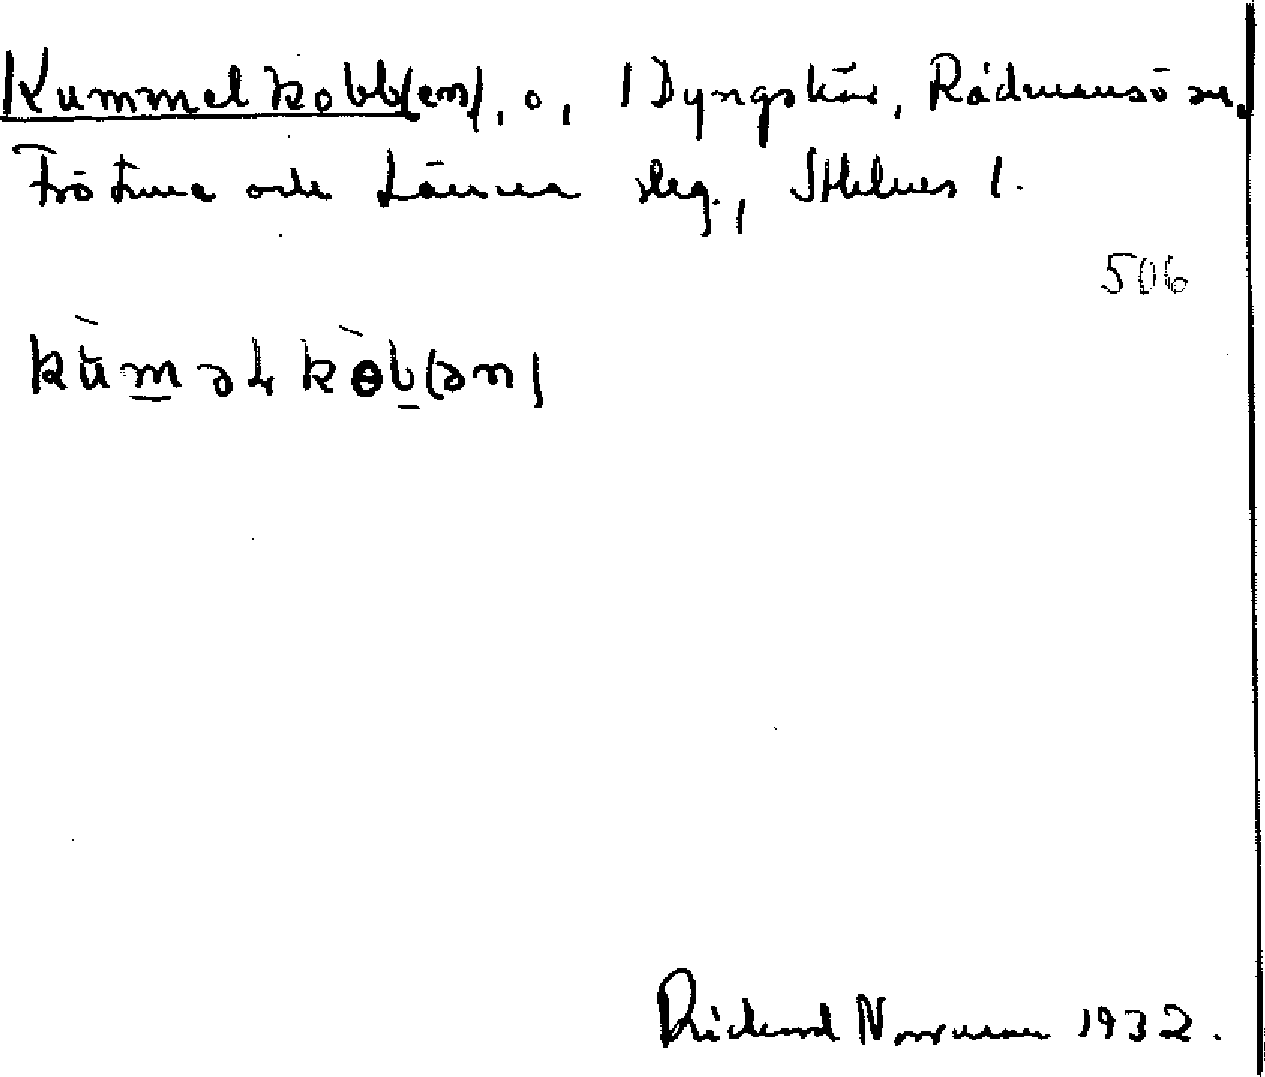 Kummelkobb(en), ö, i Dyngskär, Rådmansö sn,
Frötuna och Länna skg., Sthlms l.
506
kùməɫkòb(ən)
Rickard Norrman 1932.